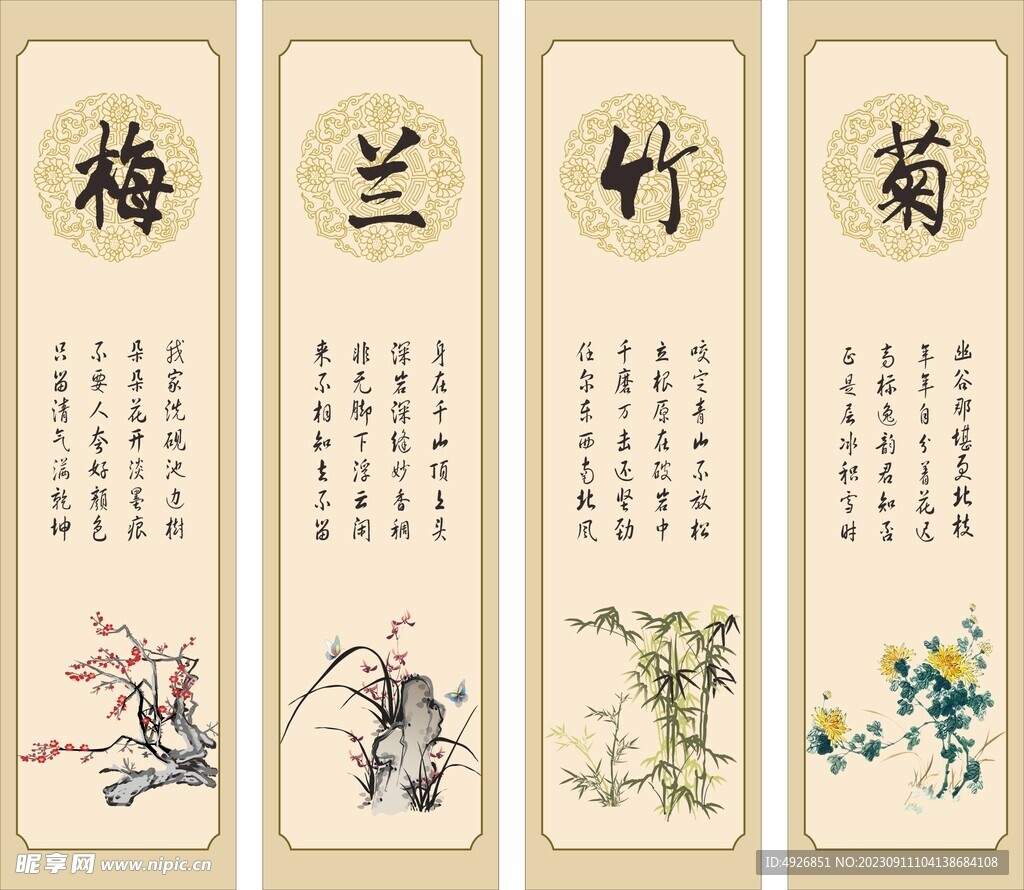 梅
我家洗砚池边樹
朵朵花开淡墨痕
不要人夸好颜色
只留清气满乾坤
兰
身在千山顶上头
深岩深缝妙香稠
非无脚下浮云闹
来不相知去不留
竹
咬定青山不放松
立根原在破岩中
千磨万击还坚劲
任尔东西南北风
菊
幽谷那堪更北枝
年年自分着花迟
高标逸韵君知否
正是层冰积雪时
昵享网 www.nipic.cn
ID:4926851 NO:20230911104138684108